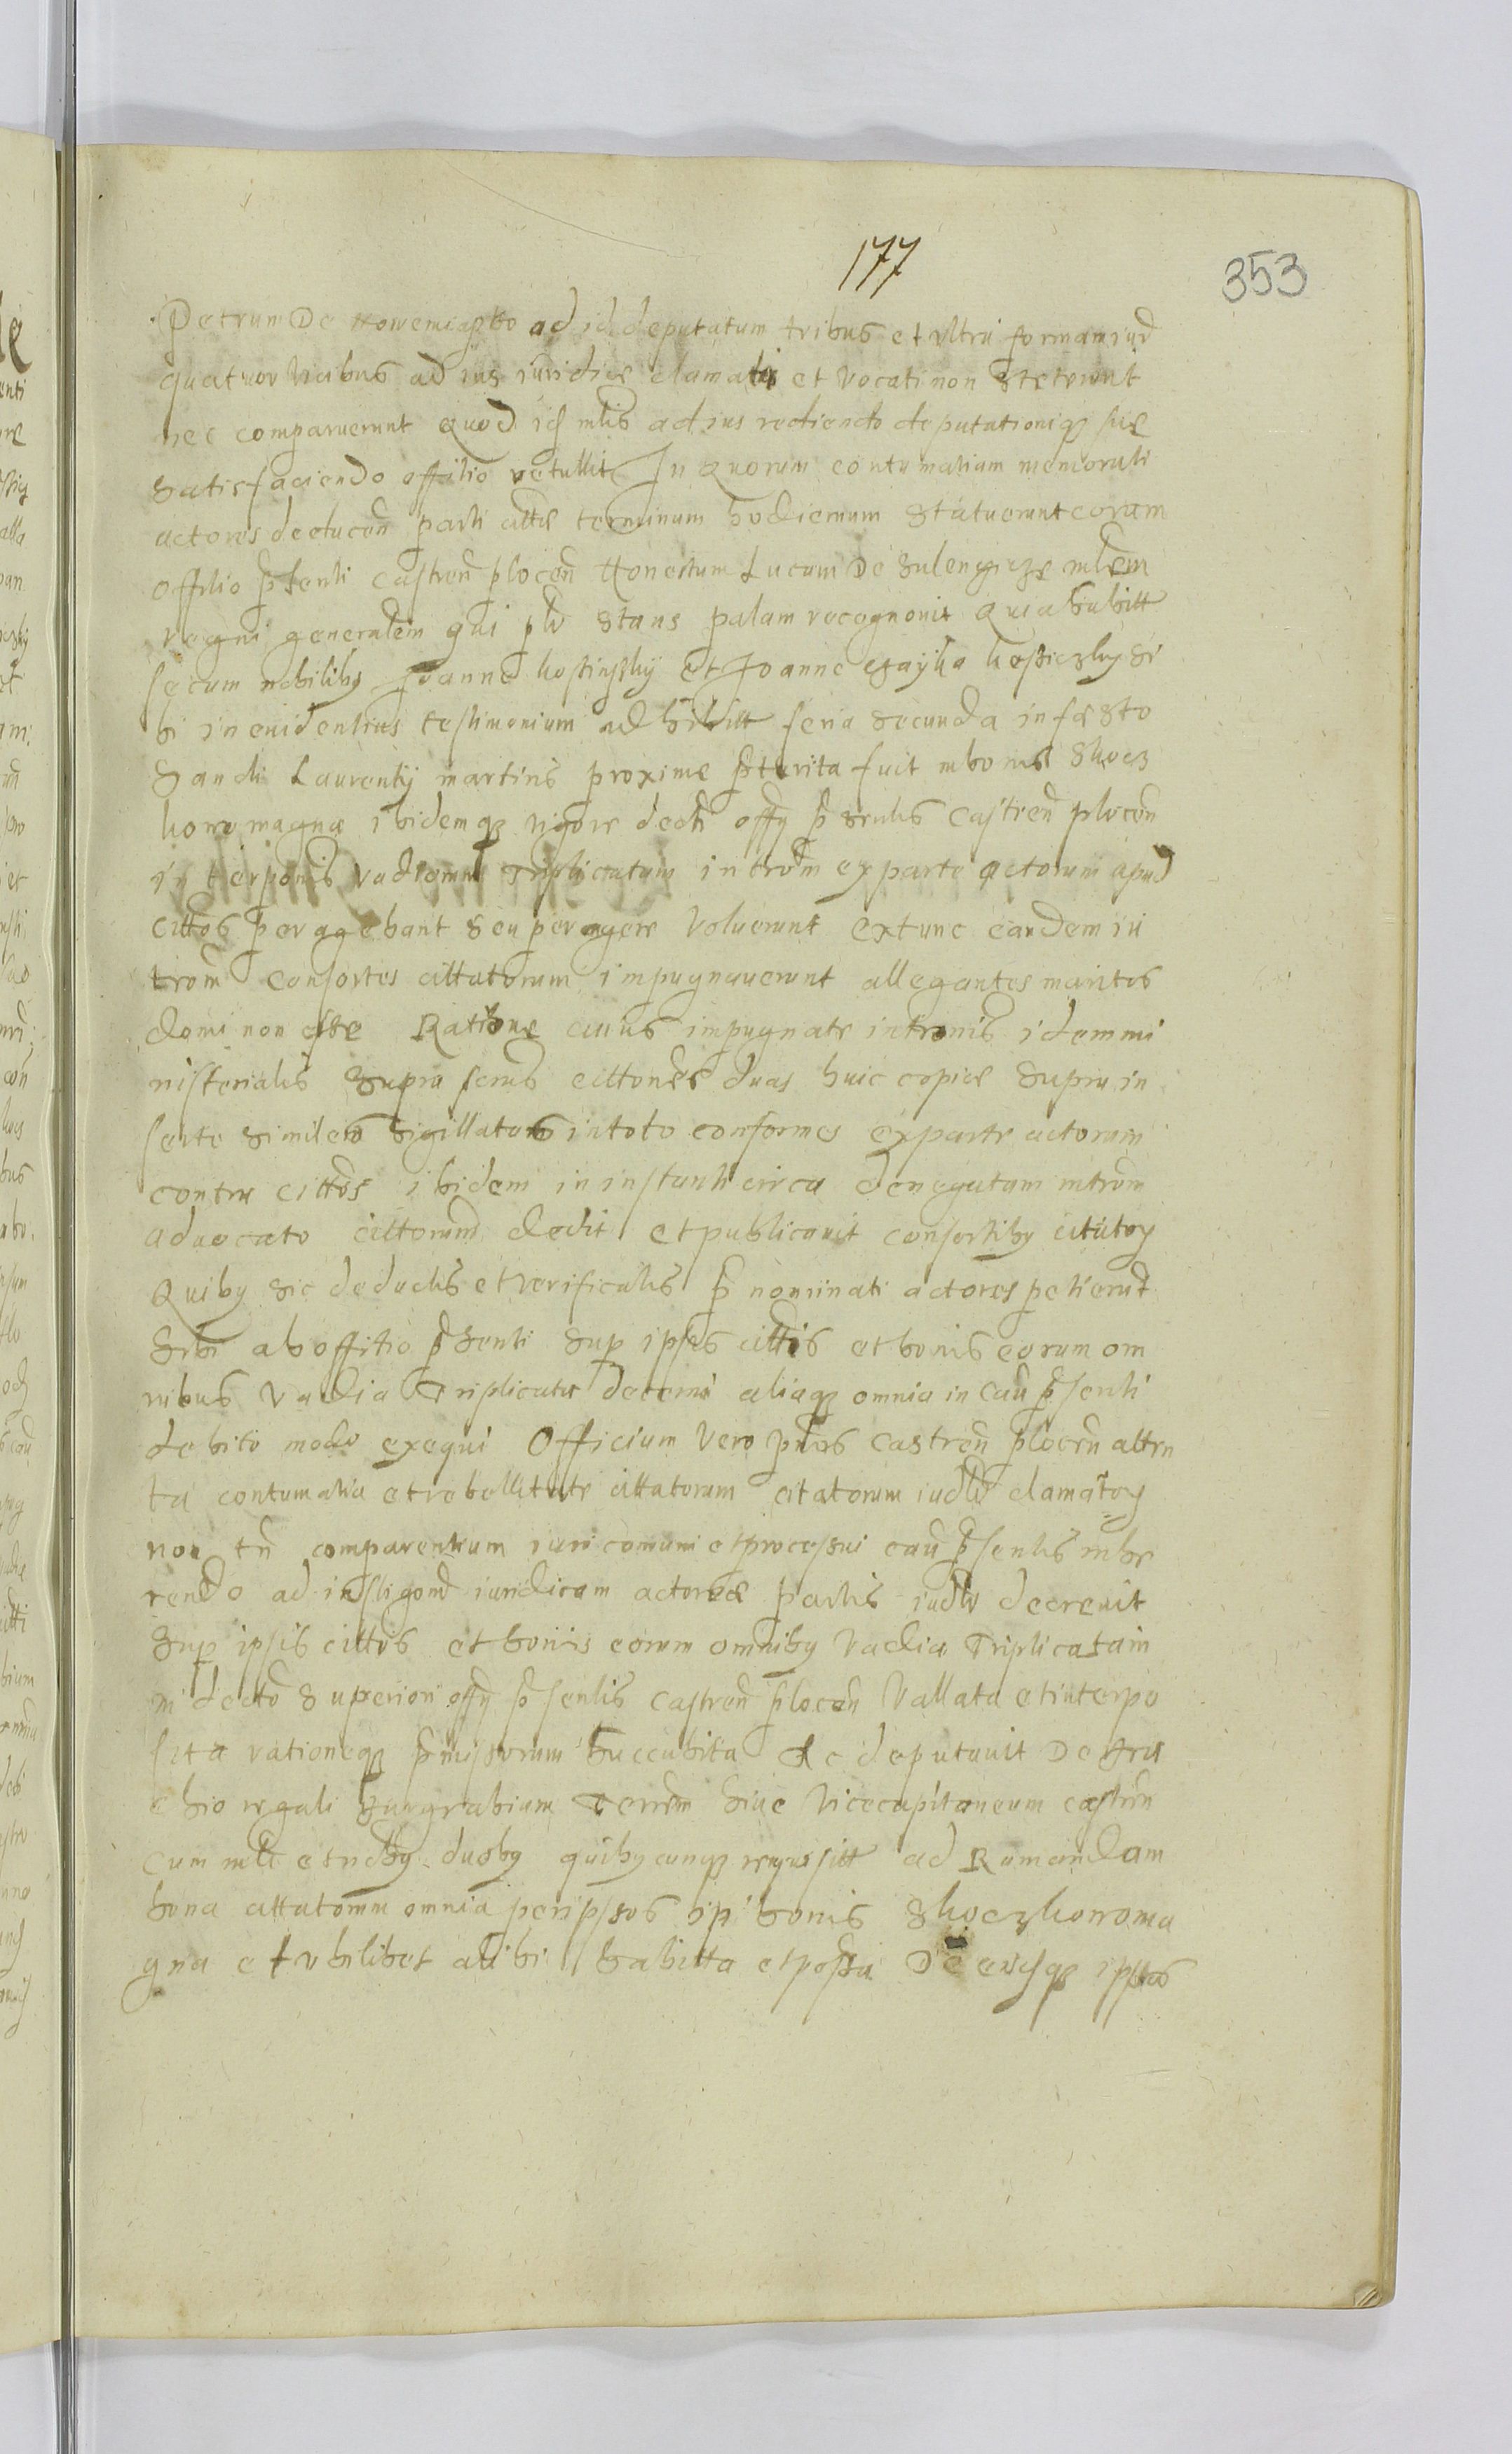 177
353
Petrum De Nowemiasto ad id deputatum tribus et ultra formam iud
quatuor vicibus ad ius iuridice clamati et vocati non steterunt
nec comparuerunt quod id mlis ad ius rediendo deputationiq sue
satisfaciendo offitio retullit In quorum contumatiam memorati
actores deducen parti citte terminum hodiernum statuerunt coram
offitio pśenti castren plocen Honestum Lucam De Sulengicze mlem
regni generalem qui plr stans palam recognovit Quia habitt
secum nobilibs Joanne kossinsky et Joanne czayka kossiczky si
bi in evidentius testimonium adhibitt feria secunda in fæsto
Sancti Laurentij martiris proxime pterita fuit in bonis Skocz
kowo magna ibidemq vigore decti offy psentis castren plocen
interponis vadiorum Triplicatam introm ex parte actorum apud
cittos peragebant seu peragere voluerunt extunc eandem in
trom consortes cittatorum impugnaverunt allegantes maritos
domi non esse Ratione cuius impugnate intronis idem mi
nisterialis supra scrus cittones duas huic copiae supra in
serte similes sigillatas in toto conformes ex parte actorum
contra cittos ibidem in instanti circa denegatam introm
advocato cittorum dedit et publicavit consortibs citator
Quibs sic deductis et verificatis pnominati actores petierunt
sibi ab offitio psenti sup ipsis cittis et bonis eorum om
nibus vadia Triplicata decerni aliaq omnia in cau psenti
debito modo exequi Officium vero pns castren plocen atten
ta contumatia et rebellitate cittatorum citatorum iudlr clamator
non tn comparentium iuri comuni et processui cau psentis inhe
rendo ad instigom iuridicam actoree partis iudlr decrevit
sup ipsis cittis et bonis eorum omnibs vadia Triplicata in
in decto superiori offy psentis castren plocen vallata et interpo
sita rationeq pmissorum succubita Ac deputavit De bra
chio regali burgrabium Terrem sive vicecapitaneum castren
cum mli et nobs duobs quibscunq requisitt ad Rumandam
bona cittatorum omnia per ipsos in bonis Skoczkowo ma
gna et ubilibet alibi habitta et possa De eisq ipsos